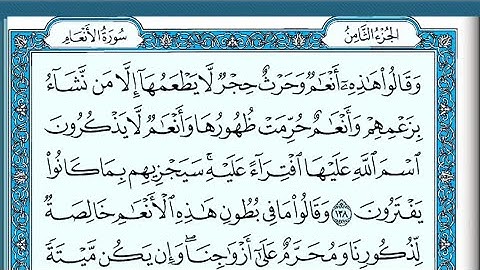 الجزء الثامن
سورة الأنعام
وَقَالُوا۟ هَـٰذِهِۦٓ أَنْعَـٰمٌ وَحَرْثٌ حِجْرٌ لَّا يَطْعَمُهَآ إِلَّا مَن نَّشَآءُ
بِزَعْمِهِمْ وَأَنْعَـٰمٌ حُرِّمَتْ ظُهُورُهَا وَأَنْعَـٰمٌ لَّا يَذْكُرُونَ
ٱسْمَ ٱللَّهِ عَلَيْهَا ٱفْتِرَآءً عَلَيْهِ ۚ سَيَجْزِيهِم بِمَا كَانُوا۟
يَفْتَرُونَ ١٣٨ وَقَالُوا۟ مَا فِى بُطُونِ هَـٰذِهِ ٱلْأَنْعَـٰمِ خَالِصَةٌ
لِّذُكُورِنَا وَمُحَرَّمٌ عَلَىٰٓ أَزْوَٰجِنَا ۖ وَإِن يَكُن مَّيْتَةً